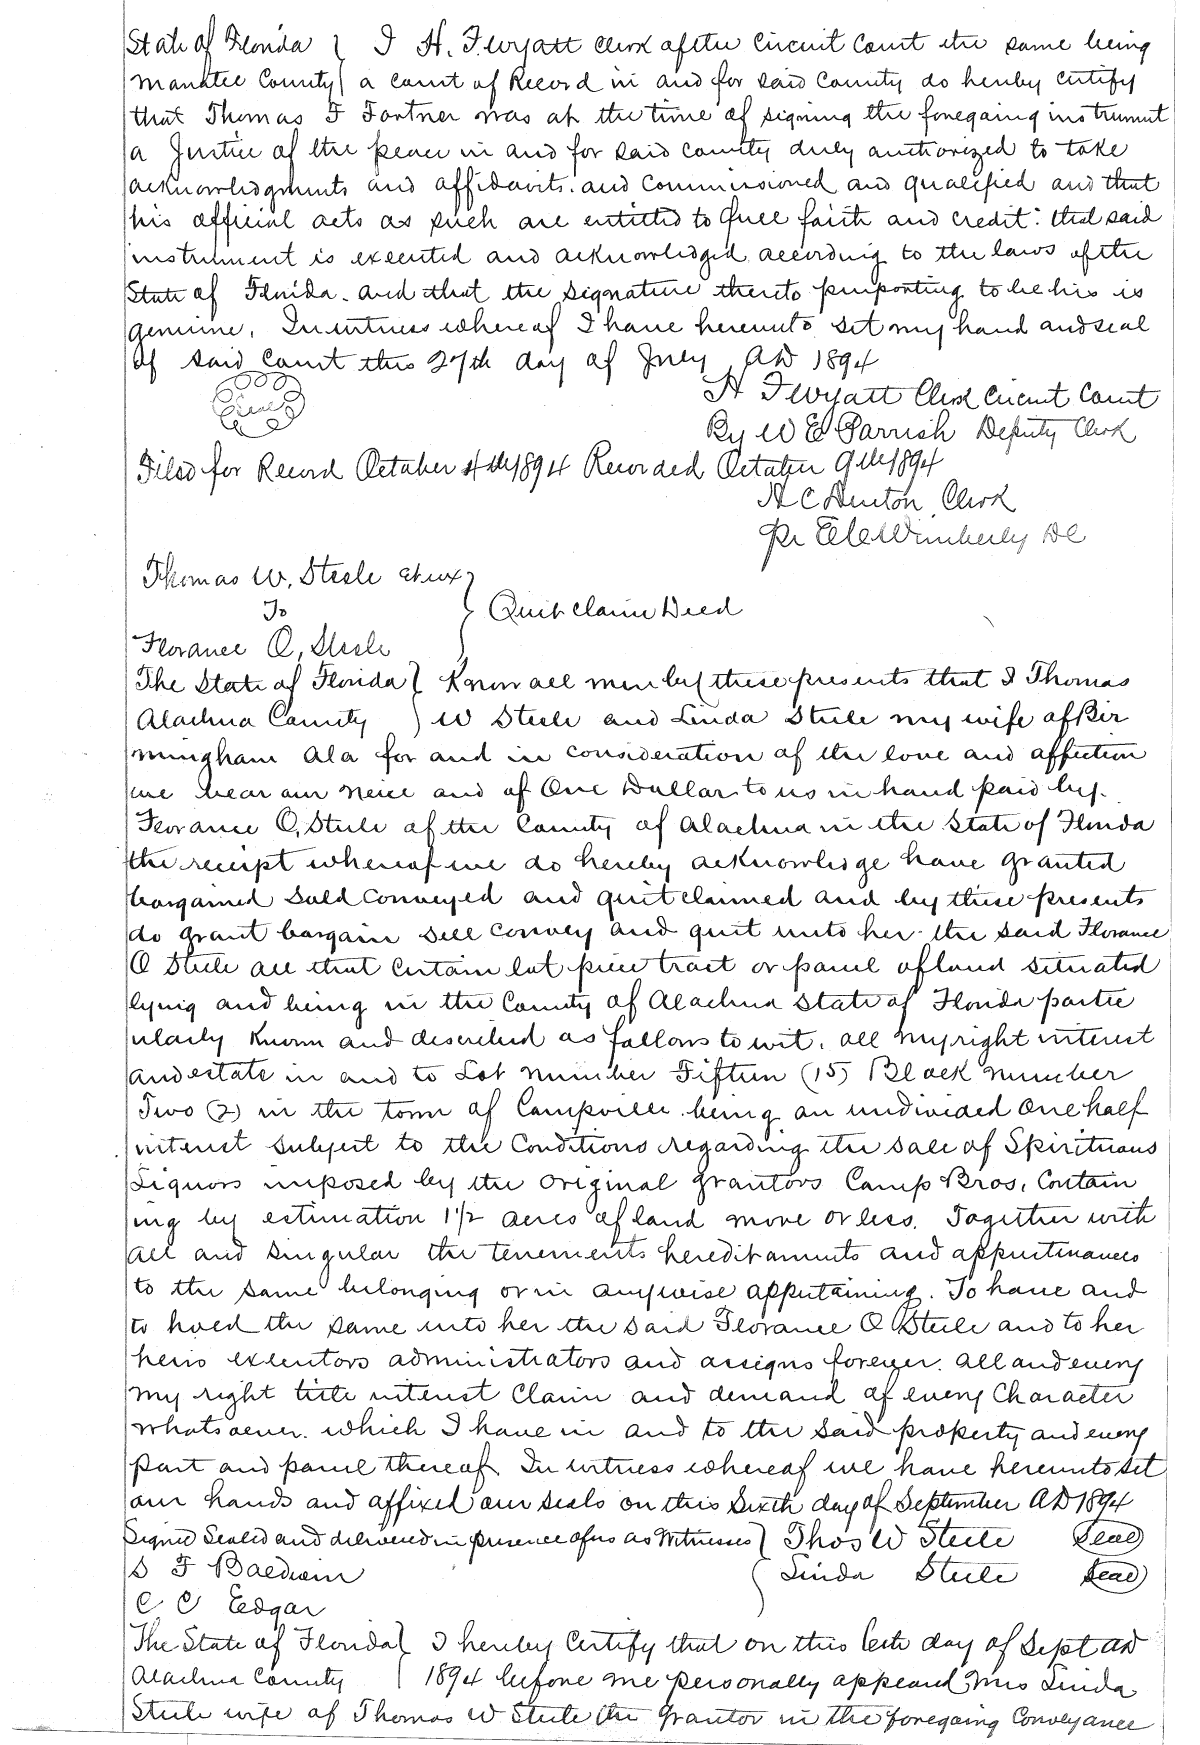 State of Florida } I H. F Wyatt Clerk of the Circuit Court the same being
Manatee County } a Court of Record in and for said County do hereby certify
that Thomas F Fortner was at the time of signing the foregoing instrument
a Justice of the peace in and for said County duly authorized to take
acknowledgments and affidavits. and commissioned and qualified and that
his official acts as such are entitled to full faith and credit. that said
instrument is executed and acknowledged according to the laws of the
State of Florida. and that the signature thereto purporting to be his is
genuine. In witness whereof I have hereunto set my hand and seal
of said Court this 27th day of July AD 1894
H F Wyatt Clerk Circuit Court
By W E Parrish Deputy Clerk
Filed for Record October 4th 1894 Recorded October 9th 1894
H C Denton, Clerk
Pr Wimberly DC
Thomas W. Steele et ux
To } Quit Claim Deed
Florance O, Steele
The State of Florida } Know all men by these presents that I Thomas
Alachua County } W Steele and Linda Steele my wife of Bir
mingham Ala for and in consideration of the love and affection
we bear our neice and of One Dollar to us in hand paid by.
Florance O, Steele of the County of Alachua in the State of Florida
the receipt whereof we do hereby acknowledge have granted
bargained sold conveyed and quitclaimed and by these presents
do grant bargain sell convey and quit unto her the said Florance
O Steele all that certain lot piece tract or parcel of land situated
lying and being in the County of Alachua State of Florida partic
ularly known and described as follows to wit. all my right interest
and estate in and to Lot number Fifteen (15) Block number
Two (2) in the town of Campville being an undivided one half
interest subject to the Conditions regarding the sale of Spirituous
Liquors imposed by the original grantors Camp Bros. Contain
ing by estimation 1 1/2 acres of land more or less. Together with
all and singular the tenements hereditaments and appurtinances
to the same belonging or in anywise appertaining. To have and
to hold the same unto her the said Florance O Steele and to her
heirs executors administrators and assigns forever. all and every
my right title interest Claim and demand of every Character
whatsoever. which I have in and to the said property and every
part and parcel thereof. In witness whereof we have hereunto set
our hands and affixed our seals on this Sixth day of September AD 1894
Signed Sealed and delivered in presence of us as Witnesses } Thos W Steele Seal
S F Baldwin } Linda Steele Seal
C C Edgar
The State of Florida } I hereby Certify that on this 6th day of Sept AD
Alachua County } 1894 before me personally appeared Mrs Linda
Steele wife of Thomas W Steele the Grantor in the foregoing Conveyance